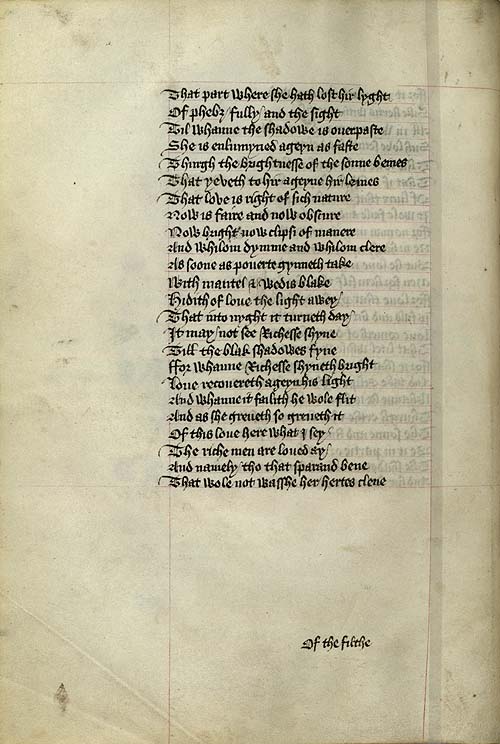 That part where she hath lost hir lyght
Of phebus fully and the sight
Til whanne the shadowe is ouerpaste
She is enlumyned ageyn as faste
Thurgh the brightnesse of the sonne bemes
That yeveth to hir ageyne hir lemes
That love is right of sich nature
Now is faire and now obscure
Now bright now clipsi of manere
And whilom dymme and whilom clere
As soone as pouerte gynneth take
With mantel & wedis blake
Hidith of loue the light awey
That into nyght it turneth day
It may not see Richesse shyne
Till the blak shadowes fyne
Ffor whanne Richesse shyneth bright
Loue recouereth ageyn his light
And whanne it failith he wole flit
And as she greueth so greueth it
Of this loue here what I sey
The riche men are loued ay
And namely tho that sparand bene
That wole not wasshe her hertes clene
Of the filthe